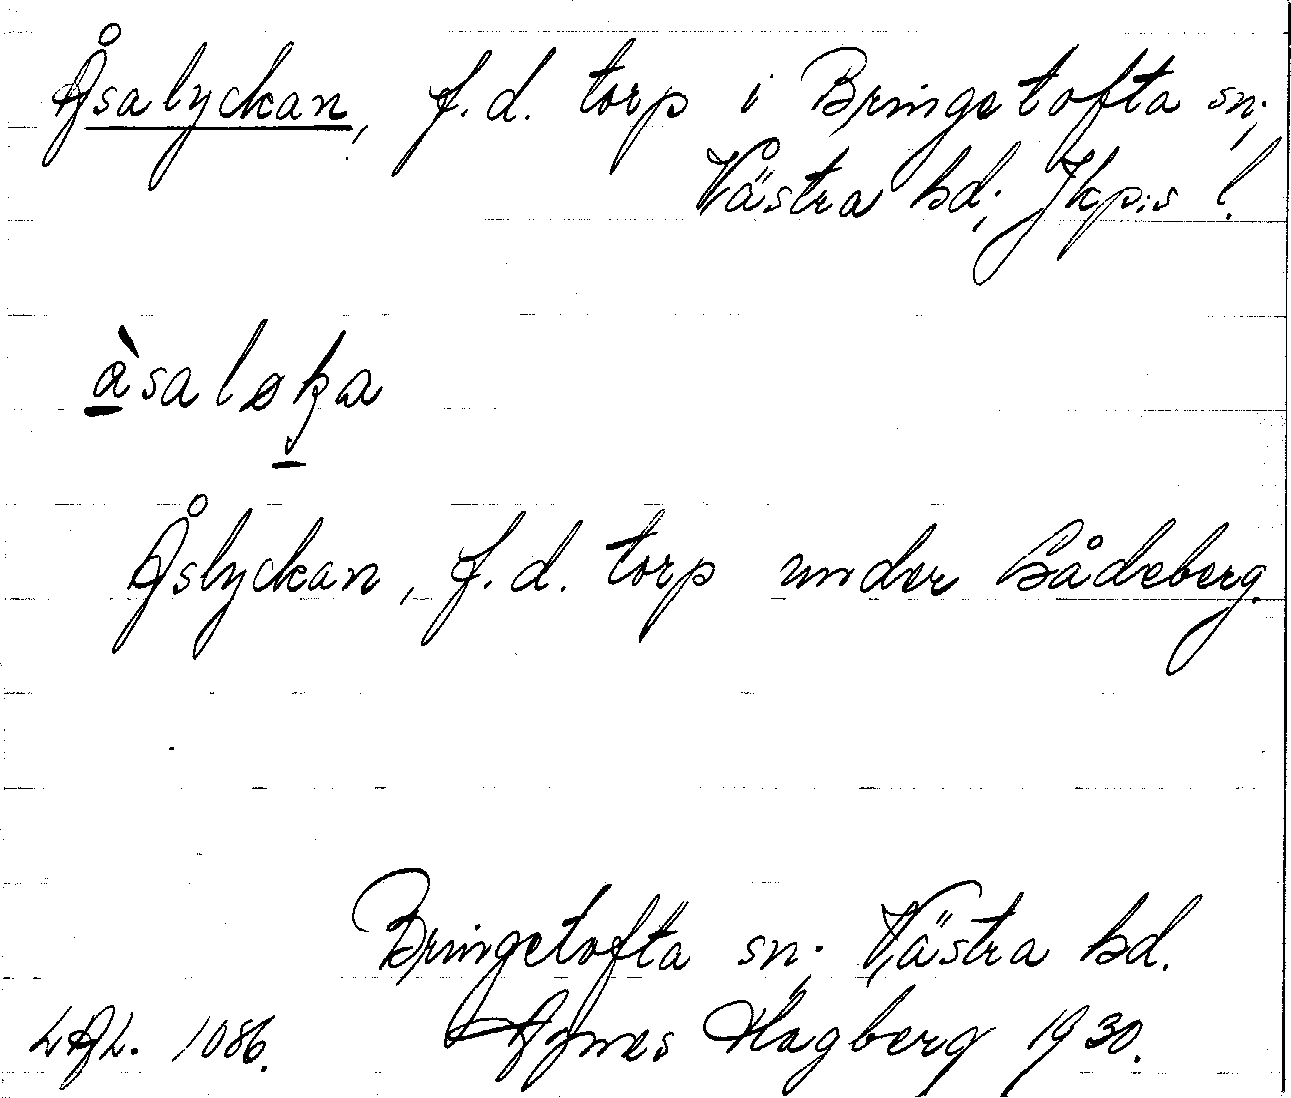 Åsalyckan, f.d. torp i Bringetofta sn;
Västra hd; Jkp:s l.
àsaløka
Åslyckan, f.d. torp under Bådeberg.
Bringetofta sn; Västra hd.
LAL. 1086. Agnes Hagberg 1930.